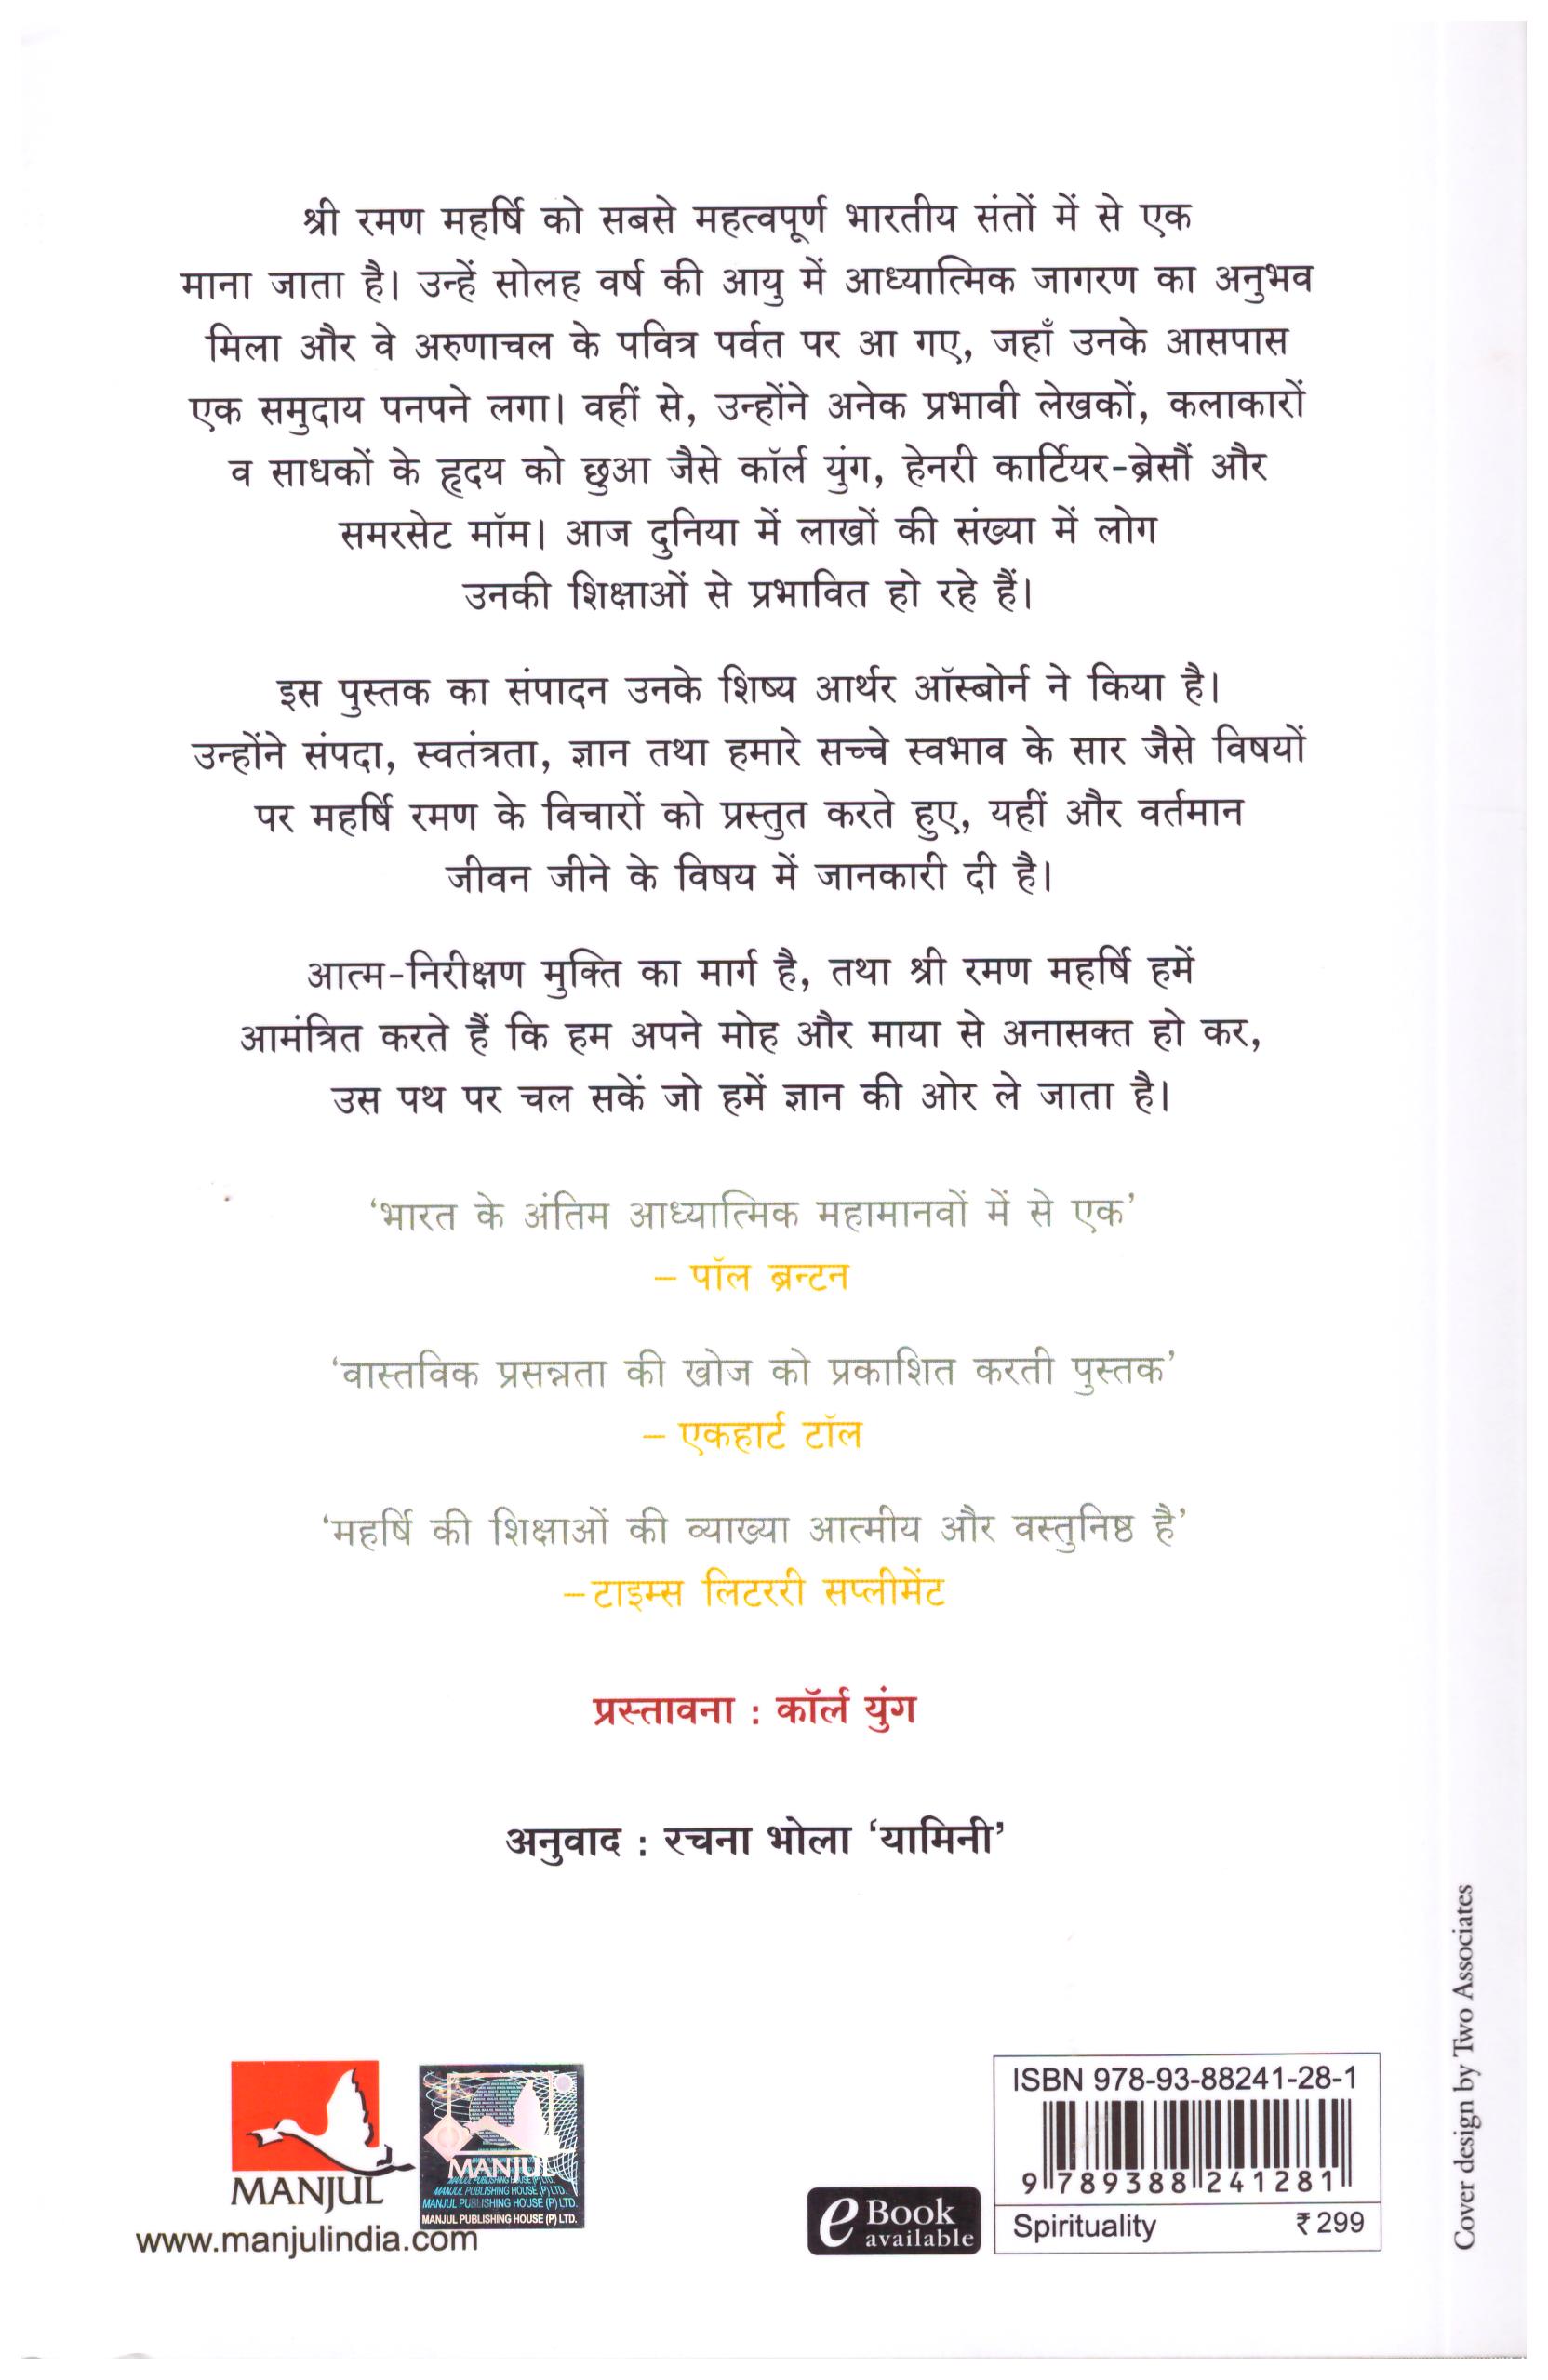 श्री रमण महर्षि को सबसे महत्वपूर्ण भारतीय संतों में से एक
माना जाता है। उन्हें सोलह वर्ष की आयु में आध्यात्मिक जागरण का अनुभव
मिला और वे अरुणाचल के पवित्र पर्वत पर आ गए, जहाँ उनके आसपास
एक समुदाय पनपने लगा। वहीं से, उन्होंने अनेक प्रभावी लेखकों, कलाकारों
व साधकों के हृदय को छुआ जैसे कॉर्ल युंग, हेनरी कार्टियर-ब्रेसौं और
समरसेट मॉम। आज दुनिया में लाखों की संख्या में लोग
उनकी शिक्षाओं से प्रभावित हो रहे हैं।
इस पुस्तक का संपादन उनके शिष्य आर्थर ऑस्बोर्न ने किया है।
उन्होंने संपदा, स्वतंत्रता, ज्ञान तथा हमारे सच्चे स्वभाव के सार जैसे विषयों
पर महर्षि रमण के विचारों को प्रस्तुत करते हुए, यहीं और वर्तमान
जीवन जीने के विषय में जानकारी दी है।
आत्म-निरीक्षण मुक्ति का मार्ग है, तथा श्री रमण महर्षि हमें
आमंत्रित करते हैं कि हम अपने मोह और माया से अनासक्त हो कर,
उस पथ पर चल सकें जो हमें ज्ञान की ओर ले जाता है।
‘भारत के अंतिम आध्यात्मिक महामानवों में से एक’
– पॉल ब्रन्टन
‘वास्तविक प्रसन्नता की खोज को प्रकाशित करती पुस्तक’
– एकहार्ट टॉल
‘महर्षि की शिक्षाओं की व्याख्या आत्मीय और वस्तुनिष्ठ है’
–टाइम्स लिटररी सप्लीमेंट
प्रस्तावना : कॉर्ल युंग
अनुवाद : रचना भोला ‘यामिनी’
MANJUL
www.manjulindia.com
MANJUL
MANJUL PUBLISHING HOUSE (P) LTD.
MANJUL PUBLISHING HOUSE (P) LTD.
MANJUL PUBLISHING HOUSE (P) LTD.
MANJUL PUBLISHING HOUSE (P) LTD.
eBook
available
ISBN 978-93-88241-28-1
9 789388 241281
Spirituality ₹ 299
Cover design by Two Associates